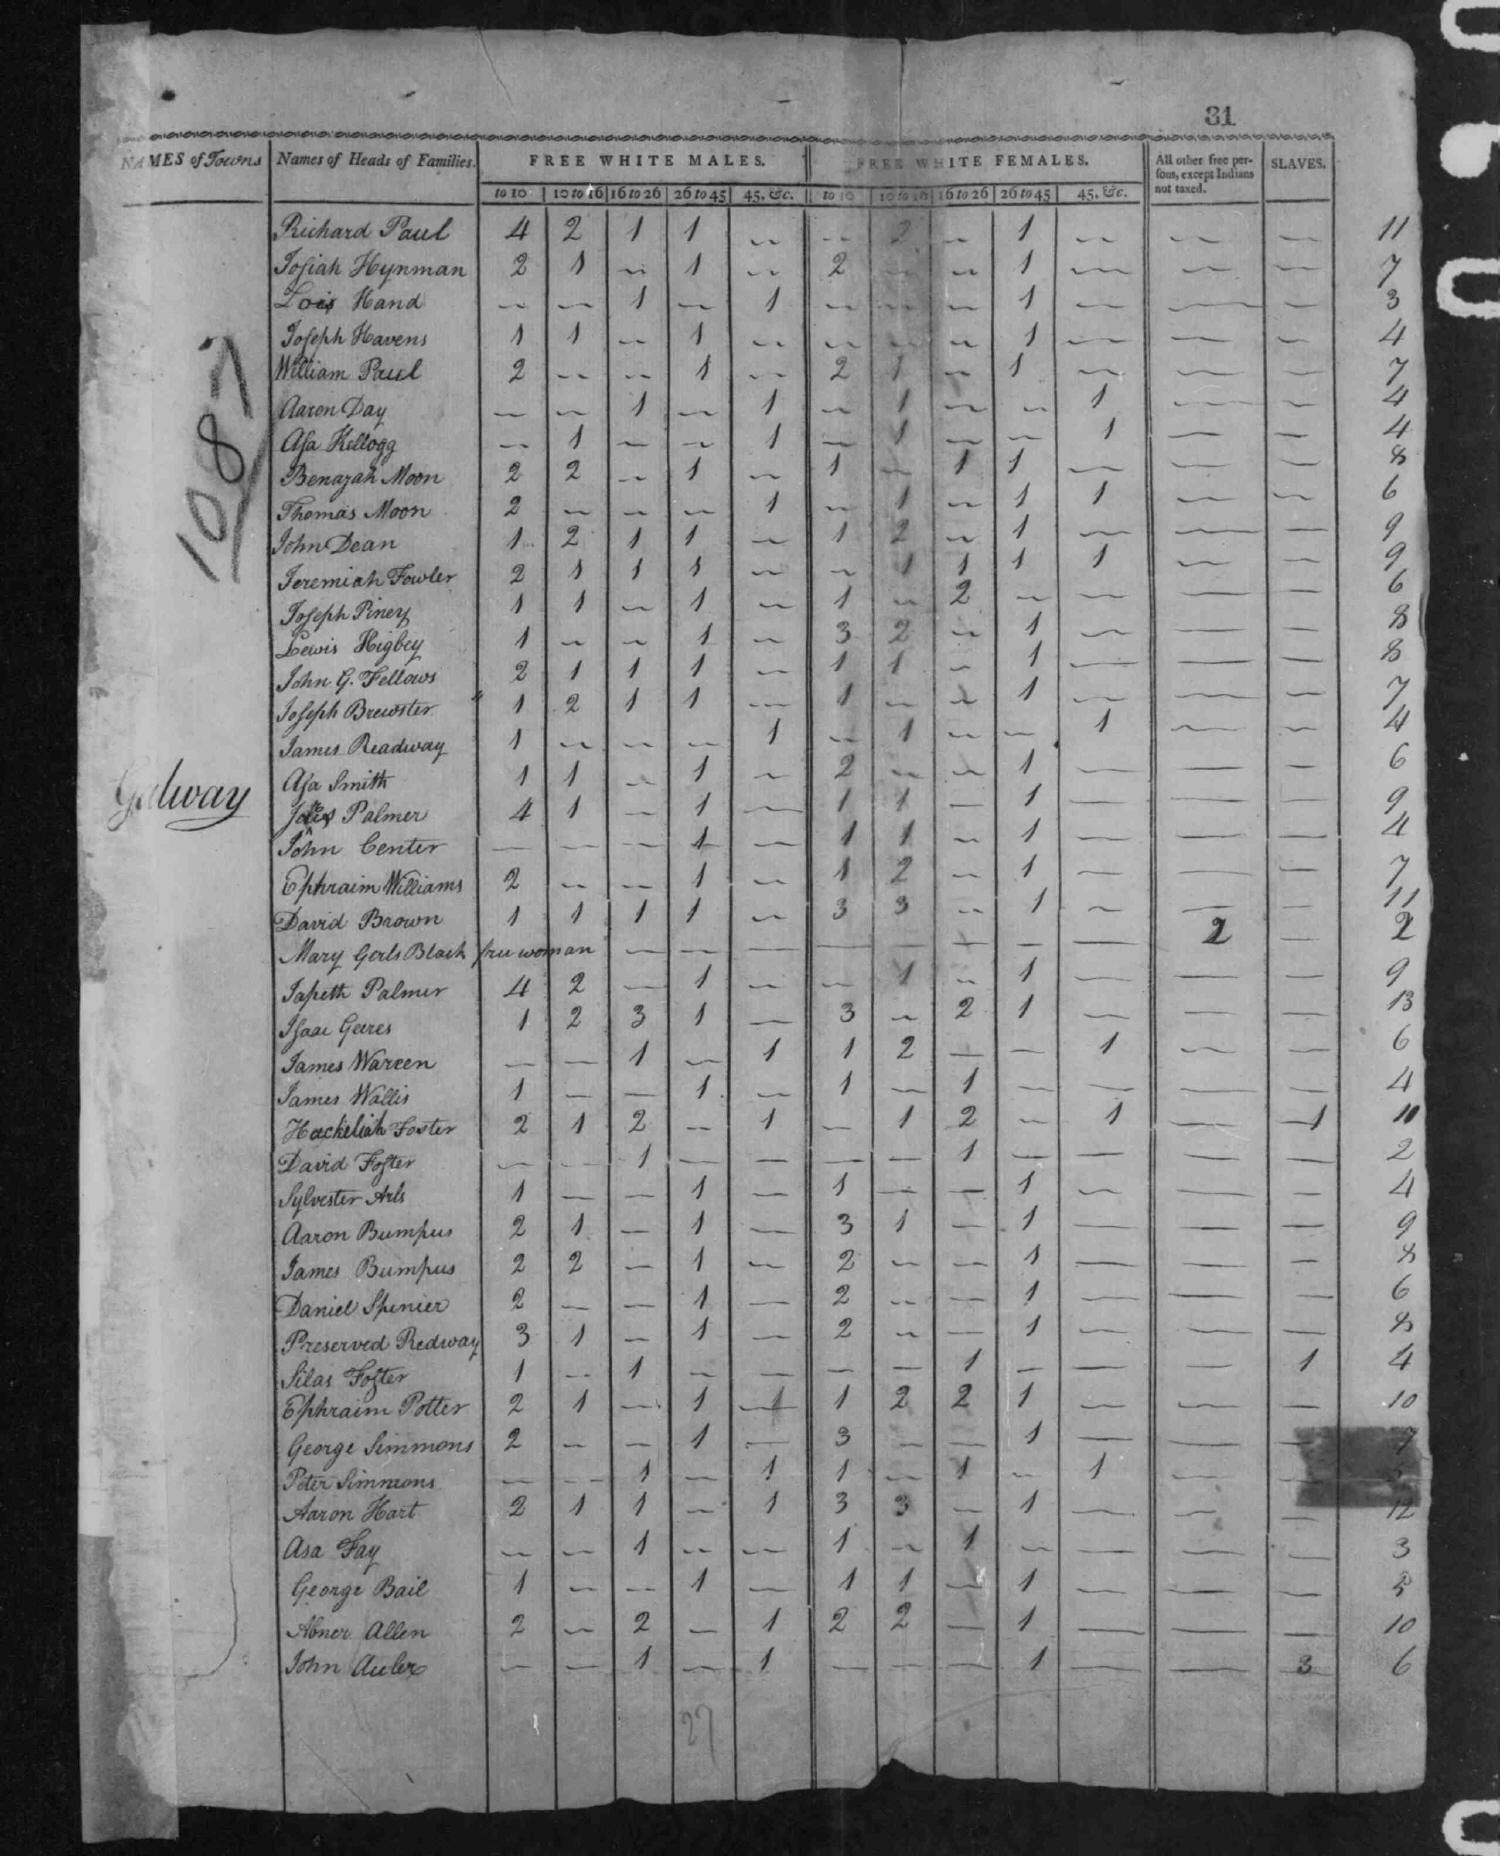 31
NAMES of Towns | Names of Heads of Families. | FREE WHITE MALES. | FREE WHITE FEMALES. | All other free persons, except Indians not taxed. | SLAVES.
to 10 | 10 to 16 | 16 to 26 | 26 to 45 | 45, &c. | to 10 | 10 to 16 | 16 to 26 | 26 to 45 | 45, &c.
1087
Galway
Richard Paul 4 2 1 1 – – 2 – 1 – – – 11
Josiah Hynman 2 1 – 1 – 2 – – 1 – – – 7
Lois Hand – – 1 – 1 – – – 1 – – – 3
Joseph Havens 1 1 – 1 – – – – 1 – – – 4
William Paul 2 – – 1 – 2 1 – 1 – – – 7
Aaron Day – – 1 – 1 – 1 – – 1 – – 4
Asa Kellogg – 1 – – 1 – 1 – – 1 – – 4
Benazah Moon 2 2 – 1 – 1 – 1 1 – – – 8
Thomas Moon 2 – – – 1 – 1 – 1 1 – – 6
John Dean 1 2 1 1 – 1 2 – 1 – – – 9
Jeremiah Fowler 2 1 1 1 – – 1 1 1 1 – – 9
Joseph Piney 1 1 – 1 – 1 – 2 – – – – 6
Lewis Higbey 1 – – 1 – 3 2 – 1 – – – 8
John G. Fellows 2 1 1 1 – 1 1 – 1 – – – 8
Joseph Brewster 1 2 1 1 – 1 – – 1 – – – 7
James Readway 1 – – – 1 – 1 – – 1 – – 4
Asa Smith 1 1 – 1 – 2 – – 1 – – – 6
Palmer 4 1 – 1 – 1 1 – 1 – – – 9
John Center – – – 1 – 1 1 – 1 – – – 4
Ephraim Williams 2 – – 1 – 1 2 – 1 – – – 7
David Brown 1 1 1 1 – 3 3 – 1 – – – 11
Mary Gerls Black free woman – – – – – – – – 2 – 2
Japeth Palmer 4 2 – 1 – – 1 – 1 – – – 9
Isaac Geeres 1 2 3 1 – 3 – 2 1 – – – 13
James Warren – – 1 – 1 1 2 – – 1 – – 6
James Wallis 1 – – 1 – 1 – 1 – – – – 4
Hackeliah Foster 2 1 2 – 1 – 1 2 – 1 – 1 10
David Foster – – 1 – – – – 1 – – – – 2
Sylvester Arls 1 – – 1 – 1 – – 1 – – – 4
Aaron Bumpus 2 1 – 1 – 3 1 – 1 – – – 9
James Bumpus 2 2 – 1 – 2 – – 1 – – – 8
Daniel Spenier 2 – – 1 – 2 – – 1 – – – 6
Preserved Redway 3 1 – 1 – 2 – – 1 – – – 8
Silas Foster 1 – 1 – – – – 1 – – – 1 4
Ephraim Potter 2 1 – 1 1 1 2 2 1 – – – 10
George Simmons 2 – – 1 – 3 – – 1 – – – 7
Peter Simmons – – 1 – 1 1 – 1 – 1 – – 5
Aaron Hart 2 1 1 – 1 3 3 – 1 – – – 12
Asa Fay – – 1 – – 1 – 1 – – – – 3
George Bail 1 – – 1 – 1 1 – 1 – – – 5
Abner Allen 2 – 2 – 1 2 2 – 1 – – – 10
John Auler – – 1 – 1 – – – 1 – – 3 6
27